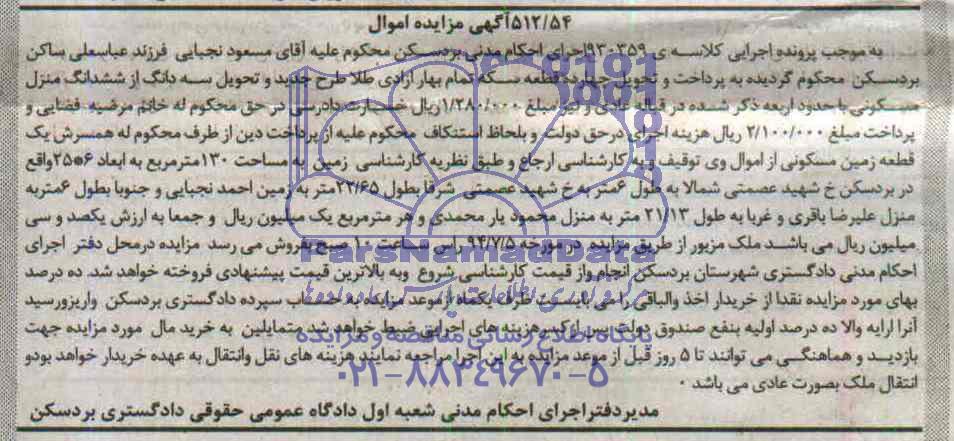 ۵۱۲/۵۴آگهی مزایده اموال
به موجب پرونده اجرایی کلاسه ی ۹۳۰۳۵۹اجرای احکام مدنی بردسکن محکوم علیه آقای مسعود نجبایی فرزند عباسعلی ساکن
بردسکن محکوم گردیده به پرداخت و تحویل چهارده قطعه سکه تمام بهار آزادی طلا طرح جدید و تحویل سه دانگ از ششدانگ منزل
مسکونی با حدود اربعه ذکر شده در قباله عادی و نیز مبلغ ۱/۲۸۰/۰۰۰ریال خسارت دادرسی در حق محکوم له خانم مرضیه فضایی و
پرداخت مبلغ ۲/۱۰۰/۰۰۰ ریال هزینه اجرای درحق دولت و بلحاظ استنکاف محکوم علیه از پرداخت دین از طرف محکوم له همسرش یک
قطعه زمین مسکونی از اموال وی توقیف و به کارشناسی ارجاع و طبق نظریه کارشناسی زمین به مساحت ۱۳۰مترمربع به ابعاد ۶*۲۵واقع
در بردسکن خ شهید عصمتی شمالا به طول ۶متر به خ شهید عصمتی شرقا بطول ۲۲/۶۵متر به زمین احمد نجبایی و جنوبا بطول ۶متربه
منزل علیرضا باقری و غربا به طول ۲۱/۱۳ متر به منزل محمود یار محمدی و هر مترمربع یک میلیون ریال و جمعا به ارزش یکصد و سی
میلیون ریال می باشد ملک مزبور از طریق مزایده در مورخه ۹۴/۷/۵راس ساعت ۱۰ صبح بفروش می رسد مزایده درمحل دفتر اجرای
احکام مدنی دادگستری شهرستان بردسکن انجام واز قیمت کارشناسی شروع وبه بالاترین قیمت پیشنهادی فروخته خواهد شد. ده درصد
بهای مورد مزایده نقدا از خریدار اخذ والباقی را می بایست ظرف یکماه ازموعد مزایده به حساب سپرده دادگستری بردسکن واریزورسید
آنرا ارایه والا ده درصد اولیه بنفع صندوق دولت پس از کسرهزینه های اجرایی ضبط خواهد شد متمایلین به خرید مال مورد مزایده جهت
بازدید و هماهنگی می توانند تا ۵ روز قبل از موعد مزایده به این اجرا مراجعه نمایند هزینه های نقل وانتقال به عهده خریدار خواهد بودو
انتقال ملک بصورت عادی می باشد ۰
مدیردفتراجرای احکام مدنی شعبه اول دادگاه عمومی حقوقی دادگستری بردسکن
ParsNamadData
پایگاه اطلاع رسانی مناقصه و مزایده
۰۲۱-۸۸۳۴۹۶۷۰-۵